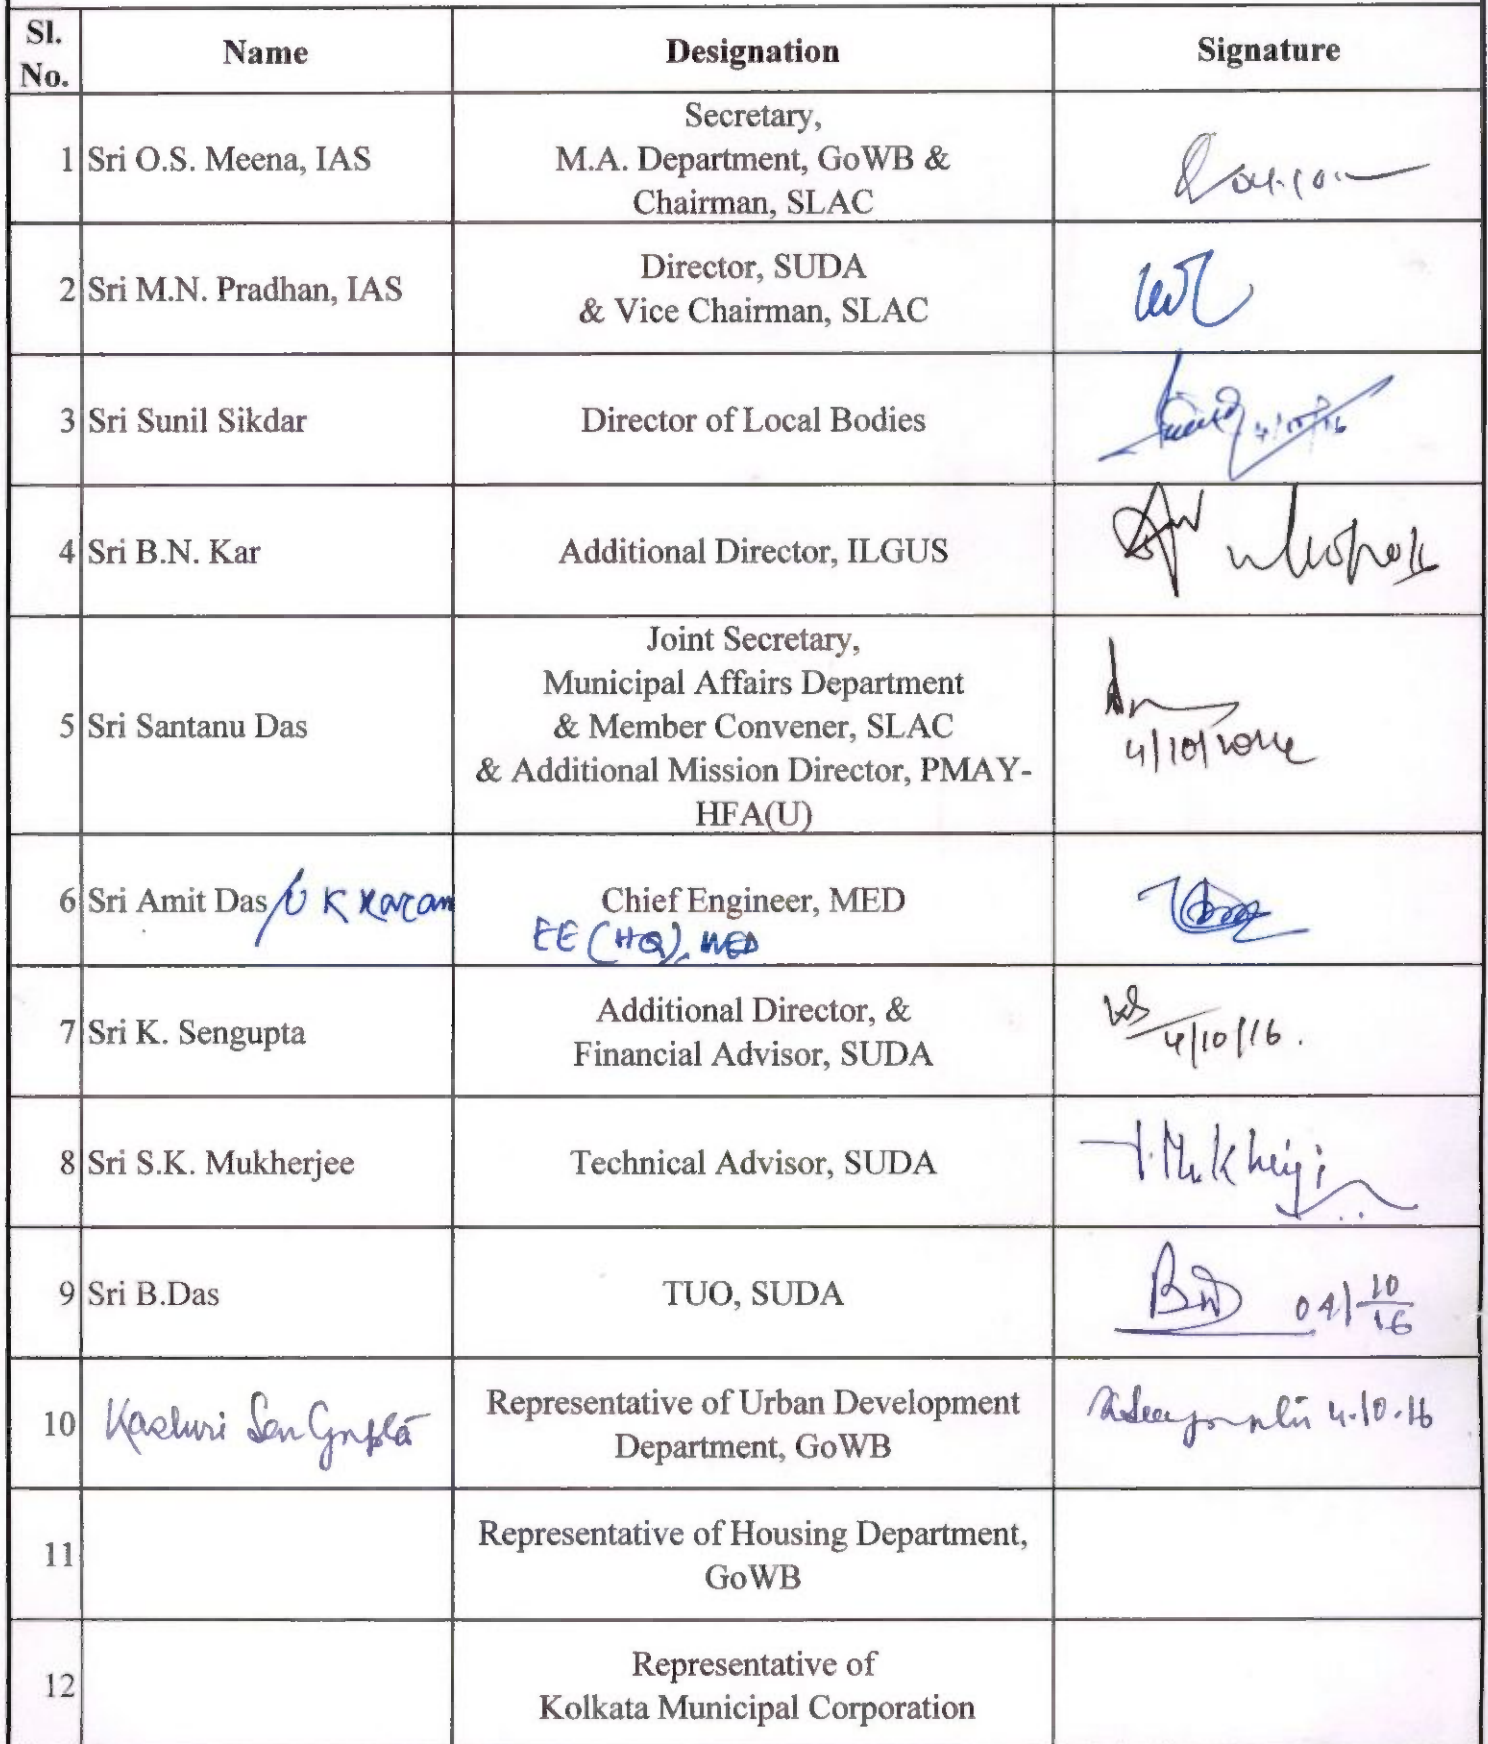 Sl. No. Name Designation Signature
Secretary,
1 Sri O.S. Meena, IAS M.A. Department, GoWB &
Chairman, SLAC
Director, SUDA
2 Sri M.N. Pradhan, IAS
& Vice Chairman, SLAC
3 Sri Sunil Sikdar Director of Local Bodies 4/10/16
4 Sri B.N. Kar Additional Director, ILGUS
Joint Secretary,
Municipal Affairs Department
5 Sri Santanu Das & Member Convener, SLAC
& Additional Mission Director, PMAY-
HFA(U)
4/10/2016
6 Sri Amit Das / U K Karan Chief Engineer, MED
EE (HQ), MED
Additional Director, &
7 Sri K. Sengupta
Financial Advisor, SUDA
4/10/16.
8 Sri S.K. Mukherjee Technical Advisor, SUDA
9 Sri B.Das TUO, SUDA 04/10/16
10 Kasturi Sen Gupta Representative of Urban Development
Department, GoWB
4.10.16
11 Representative of Housing Department,
GoWB
12 Representative of
Kolkata Municipal Corporation